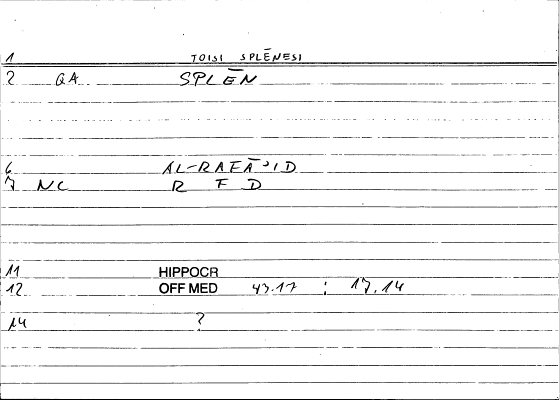 1 TOISI SPLĒNESI
2 QA SPLĒN
6 AL-RAFĀʾID
7 NC R F D
11 HIPPOCR
12 OFF MED 43.17 : 17.14
14 ?